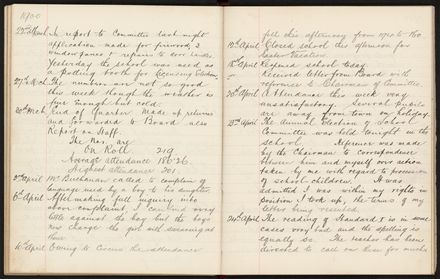 1900
22nd March In report to Committee last night
application made for firewood, 2
window panes & repairs to door
Yesterday the school was used as
a Polling booth for Licensing Election.
27th March The numbers are not so good
this week though the weather is
fine though but cold.
30th Mch End of Quarter. Made up returns
and forwarded to Board also
Report on Staff.
The Nos. are
On Roll 219
Average attendance 186.26
Highest attendance 201
2nd April Mr Buchanan called to complain of
language used by a boy to his daughter.
6th April After making full inquiry into
above complaint I can find very
little against the boy but the boys
now charge the girl with swearing at
them
10th April Owing to Circus the attendance
fell this afternoon from 170 to 160
12th April Closed school this afternoon for
Easter Vacation.
18th April Reopened school today.
Received letter from Board with
reference to Chairman of Committee
20th April Attendance this week very
unsatisfactory. Several pupils
are away from town on holiday.
23rd April The Annual Election of School
Committee was held tonight in the
school. Reference was made
by the Chairman to Correspondence
between him and myself over action
taken by me with regard to
of school children. It was
admitted I was within my rights in
position I took up, the terms of my
letter being
24th April The reading of Standard 5 is in some
cases very bad and the spelling is
equally so. The teacher has been
directed to call on these for much